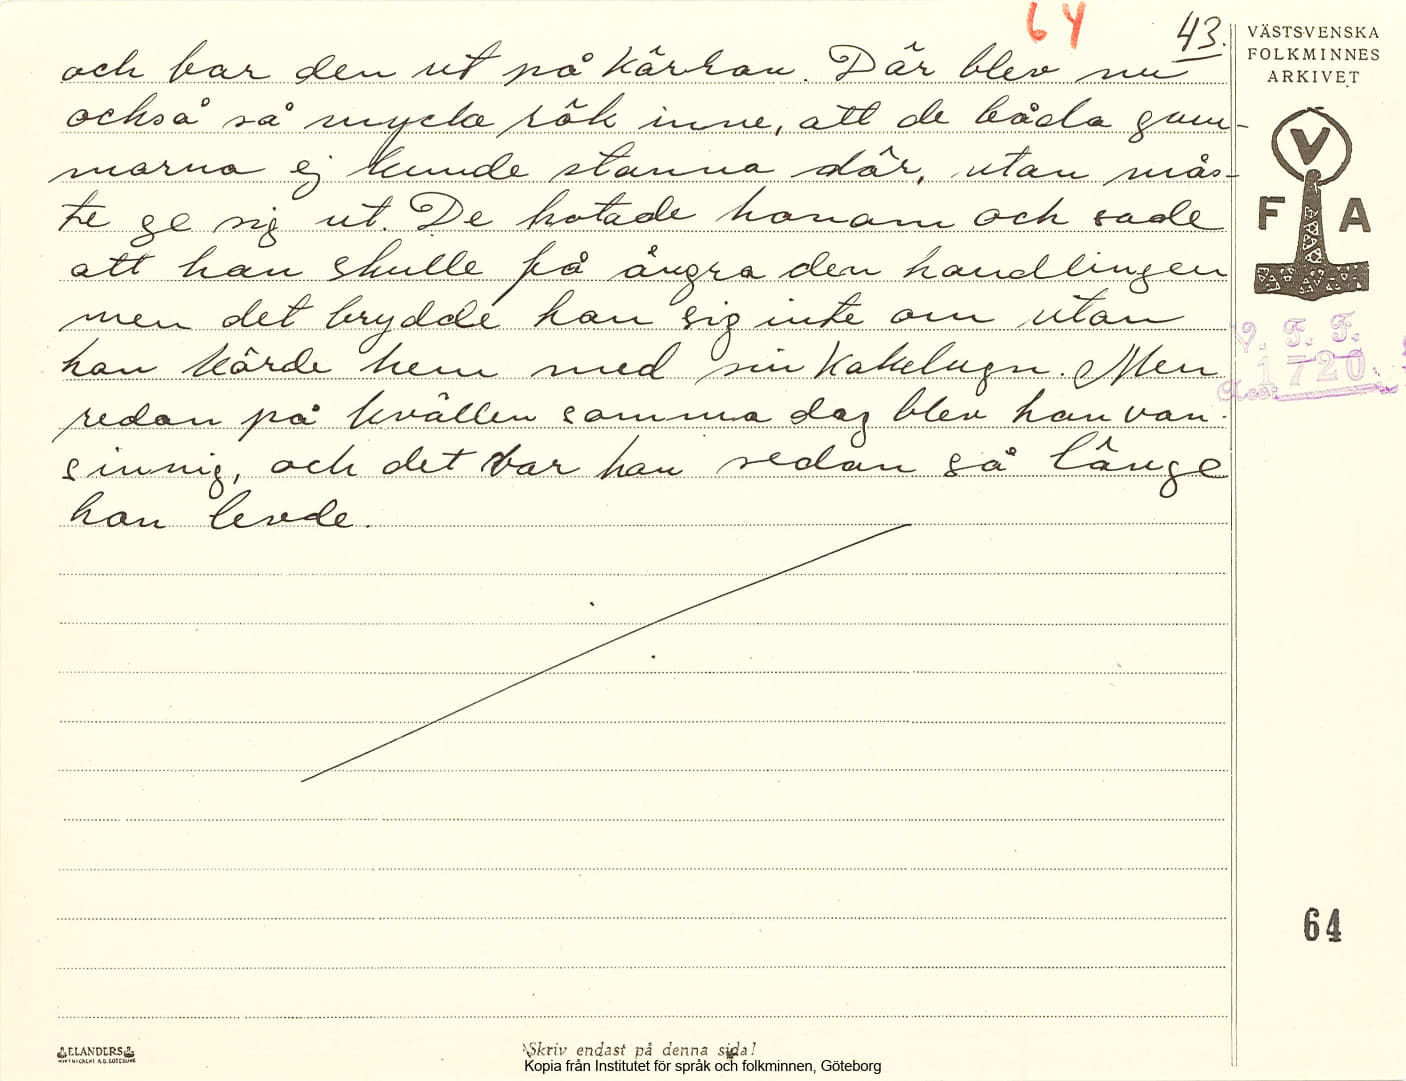 64
43.
och bar den ut på kärran. Där blev nu
också så mycke rök inne, att de båda gum-
morna ej kunde stanna där, utan mås-
te ge sig ut. De hotade honom och sade
att han skulle få ångra den handlingen
men det brydde han sig inte om utan
han körde hem med sin kakelugn. Men
redan på kvällen samma dag blev han van-
sinnig, och det var han sedan så länge
han levde.
VÄSTSVENSKA
FOLKMINNES
ARKIVET
V
F A
V. F. F.
Acc: 1720
64
ELANDERS
Skriv endast på denna sida!
Kopia från Institutet för språk och folkminnen, Göteborg